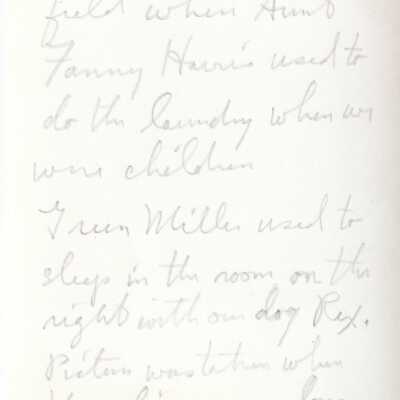 field when Aunt
Fanny Harris used to
do the laundry when we
were children
Miller used to
sleep in the room on the
right with our dog Rex.
Picture was taken when